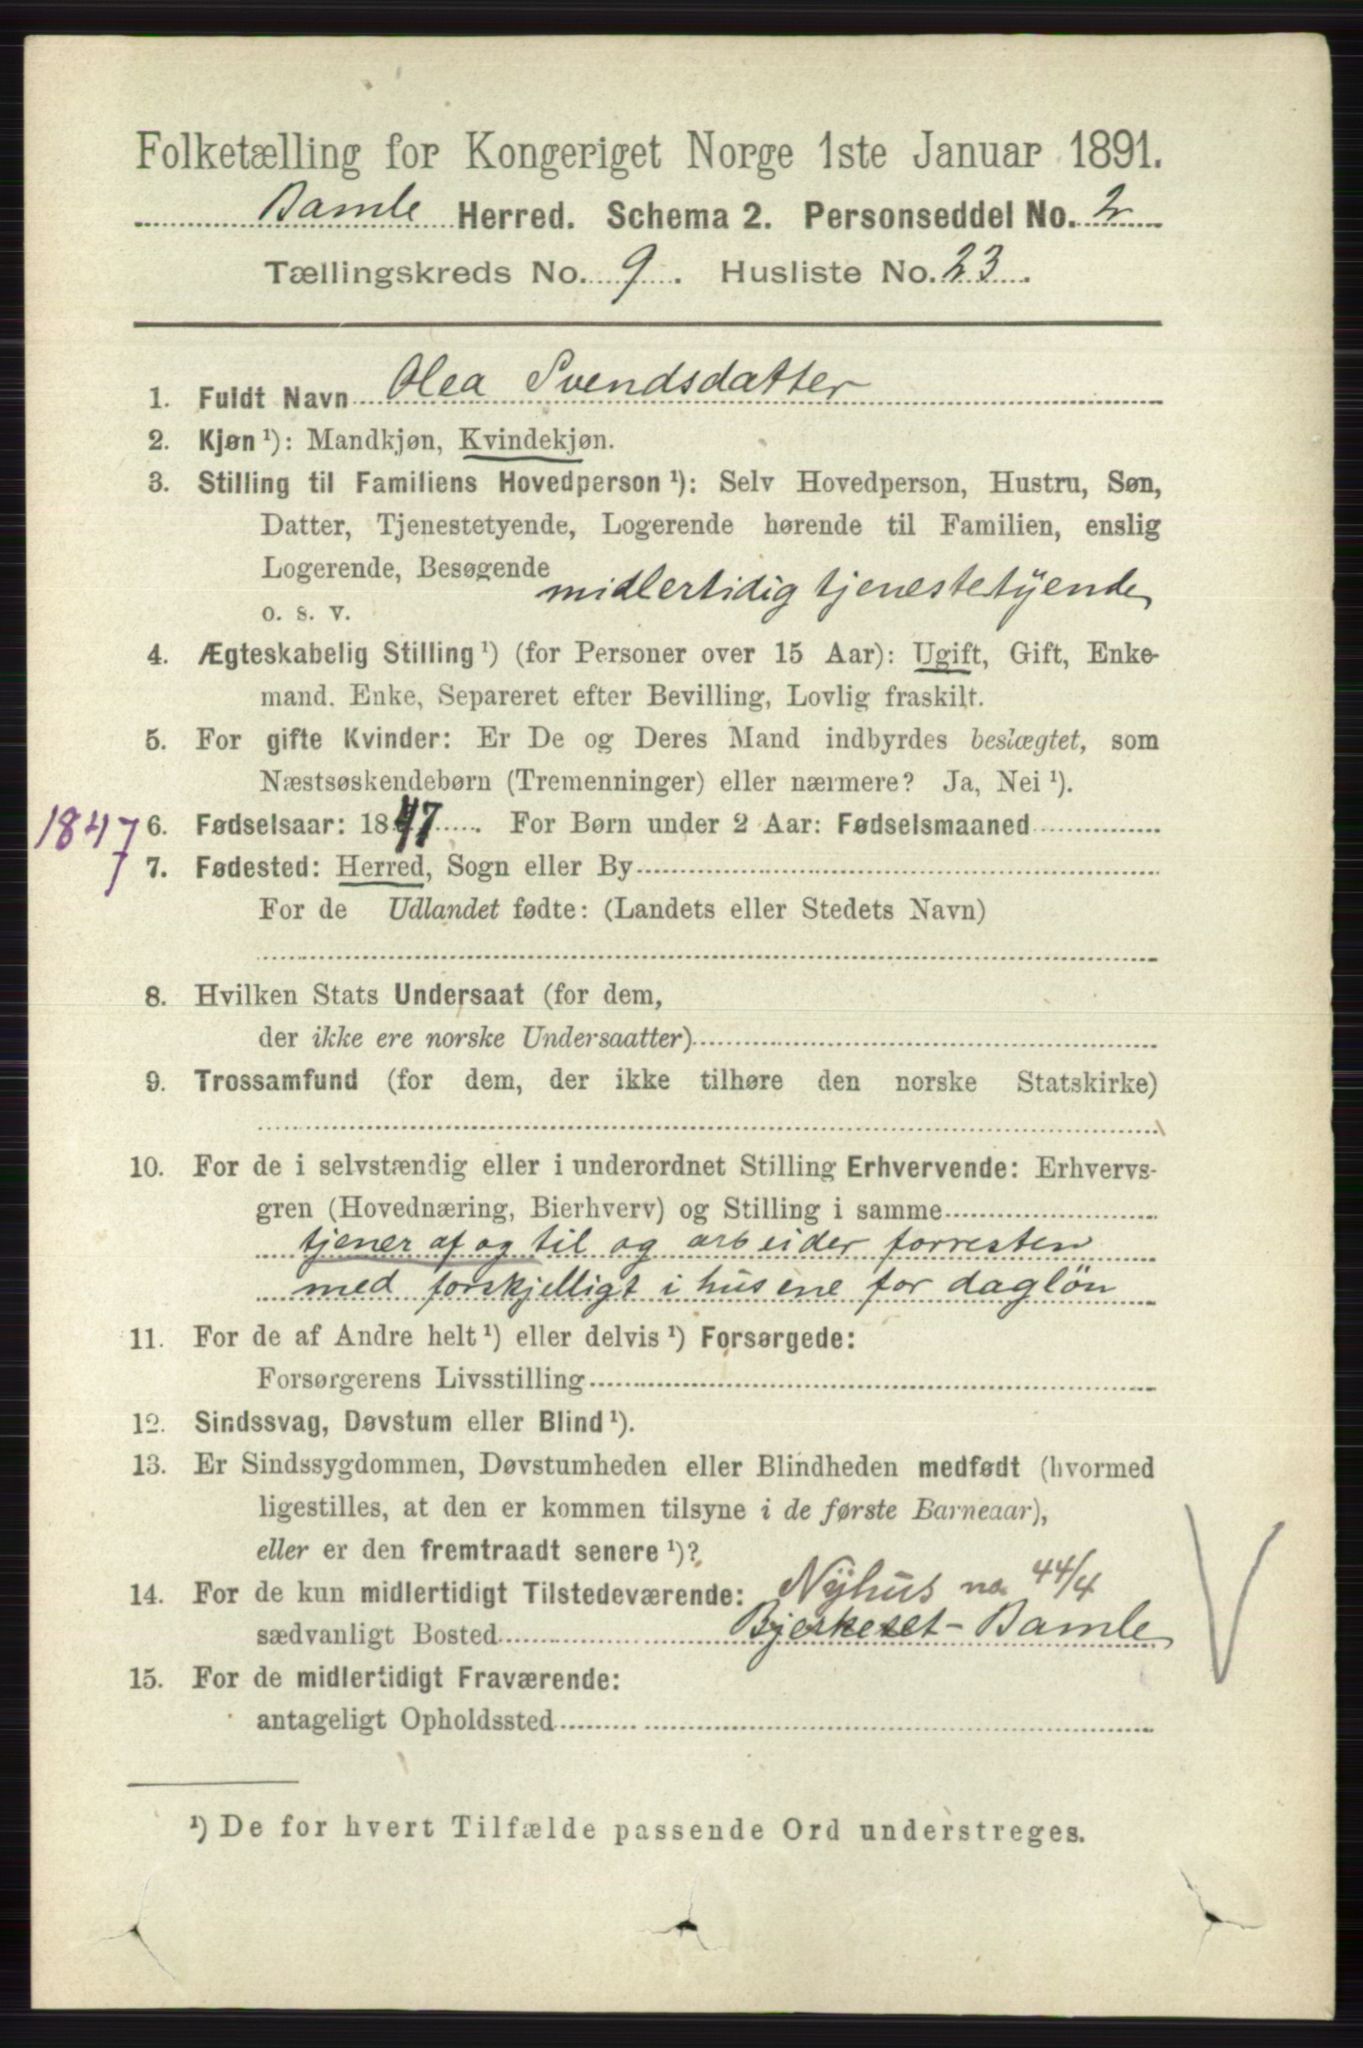 Folketælling for Kongeriget Norge 1ste Januar 1891.
Bamle Herred. Schema 2. Personseddel No. 2
Tællingskreds No. 9. Husliste No. 23.
1. Fuldt Navn Olea Svendsdatter
2. Kjøn ¹): Mandkjøn, Kvindekjøn.
3. Stilling til Familiens Hovedperson ¹): Selv Hovedperson, Hustru, Søn,
Datter, Tjenestetyende, Logerende hørende til Familien, enslig
Logerende, Besøgende
o. s. v. midlertidig tjenestetyende
4. Ægteskabelig Stilling ¹) (for Personer over 15 Aar): Ugift, Gift, Enke-
mand. Enke, Separeret efter Bevilling, Lovlig fraskilt.
5. For gifte Kvinder: Er De og Deres Mand indbyrdes beslægtet, som
Næstsøskendebørn (Tremenninger) eller nærmere? Ja, Nei ¹).
1847 6. Fødselsaar: 1847. For Børn under 2 Aar: Fødselsmaaned
7. Fødested: Herred, Sogn eller By
For de Udlandet fødte: (Landets eller Stedets Navn)
8. Hvilken Stats Undersaat (for dem,
der ikke ere norske Undersaatter)
9. Trossamfund (for dem, der ikke tilhøre den norske Statskirke)
10. For de i selvstændig eller i underordnet Stilling Erhvervende: Erhvervs-
gren (Hovednæring, Bierhverv) og Stilling i samme
tjener af og til og arbeider forresten
med forskjelligt i husene for daglön
11. For de af Andre helt ¹) eller delvis ¹) Forsørgede:
Forsørgerens Livsstilling
12. Sindssvag, Døvstum eller Blind ¹).
13. Er Sindssygdommen, Døvstumheden eller Blindheden medfødt (hvormed
ligestilles, at den er kommen tilsyne i de første Barneaar),
eller er den fremtraadt senere ¹)?
14. For de kun midlertidigt Tilstedeværende: Nyhus no 44/4
sædvanligt Bosted Bjerkeset - Bamle
15. For de midlertidigt Fraværende:
antageligt Opholdssted
¹) De for hvert Tilfælde passende Ord understreges.